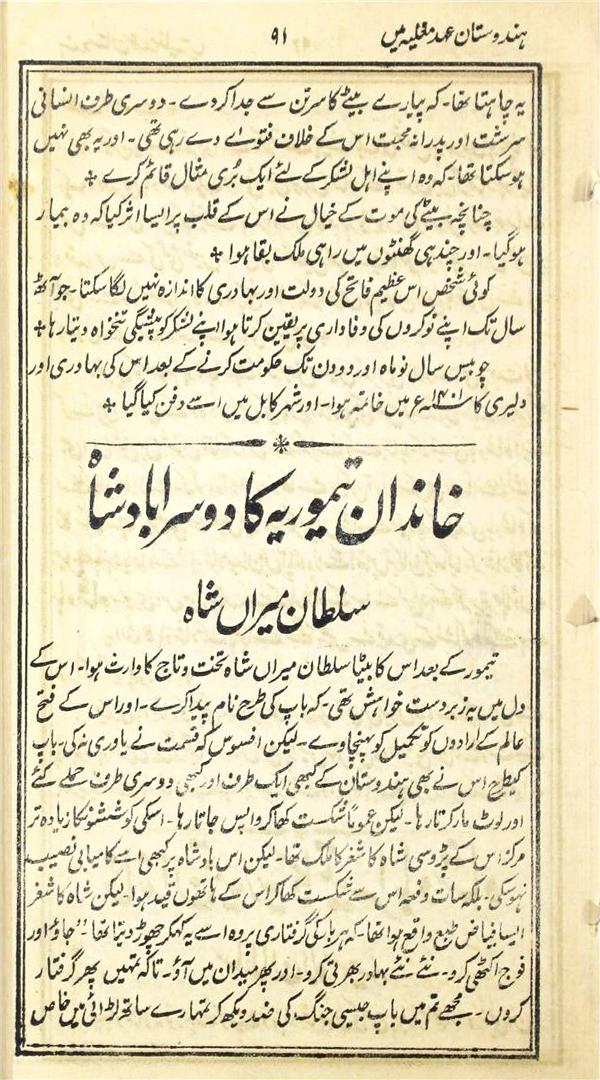 ہندوستان عہد مغلیہ میں ۹۱
یہ چاہتا تھا۔ کہ پیارے بیٹے کا سر تن سے جدا کر دے۔ دوسری طرف انسانی
سرشت اور پدرانہ محبت اس کے خلاف فتوے دے رہی تھی۔ اور یہ بھی نہیں
ہو سکتا تھا۔ کہ وہ اپنے اہل لشکر کے لئے ایک بُری مثال قائم کرے ٭
چنانچہ بیٹے کی موت کے خیال نے اس کے قلب پر ایسا اثر کیا کہ وہ بیمار
ہو گیا۔ اور چند ہی گھنٹوں میں راہی ملک بقا ہوا ٭
کوئی شخص اس عظیم فاتح کی دولت اور بہادری کا اندازہ نہیں لگا سکتا۔ جو آٹھ
سال تک اپنے نوکروں کی وفاداری پر یقین کرتا ہوا اپنے لشکر کو پیشگی تنخواہ دیتا رہا ٭
چوبیس سال نو ماہ اور دو دن تک حکومت کرنے کے بعد اس کی بہادری اور
دلیری کا سنہ ۱۴۰۱ء میں خاتمہ ہوا۔ اور شہر کابل میں اسے دفن کیا گیا ٭
خاندان تیموریہ کا دوسرا بادشاہ
سلطان میراں شاہ
تیمور کے بعد اس کا بیٹا سلطان میراں شاہ تخت و تاج کا وارث ہوا۔ اس کے
دل میں یہ زبردست خواہش تھی۔ کہ باپ کی طرح نام پیدا کرے۔ اور اس کے فتح
عالم کے ارادوں کو تکمیل کو پہنچاوے۔ لیکن افسوس کہ قسمت نے یاوری نہ کی۔ باپ
کیطرح اس نے بھی ہندوستان کے کبھی ایک طرف اور کبھی دوسری طرف حملے کئے
اور لوٹ مار کرتا رہا۔ لیکن عموماً شکست کھا کر واپس جاتا رہا۔ اسکی کوششونکا زیادہ تر
مرکز اس کے پڑوسی شاہ کا شغر کا ملک تھا۔ لیکن اس بادشاہ پر کبھی اسے کامیابی نصیب
نہوسکی۔ بلکہ سات دفعہ اس سے شکست کھا کر اس کے ہاتھوں قید ہوا۔ لیکن شاہ کاشغر
ایسا فیاض طبع واقع ہوا تھا۔ کہ ہر بار کی گرفتاری پر وہ اسے یہ کہکر چھوڑ دیتا تھا۔ "جاؤ اور
فوج اکٹھی کرو۔ نئے نئے بہادر بھرتی کرو۔ اور پھر میدان میں آؤ۔ تاکہ تمہیں پھر گرفتار
کروں۔ مجھے تم میں باپ جیسی جنگ کی ضد دیکھ کر تمہارے ساتھ لڑائی میں خاص